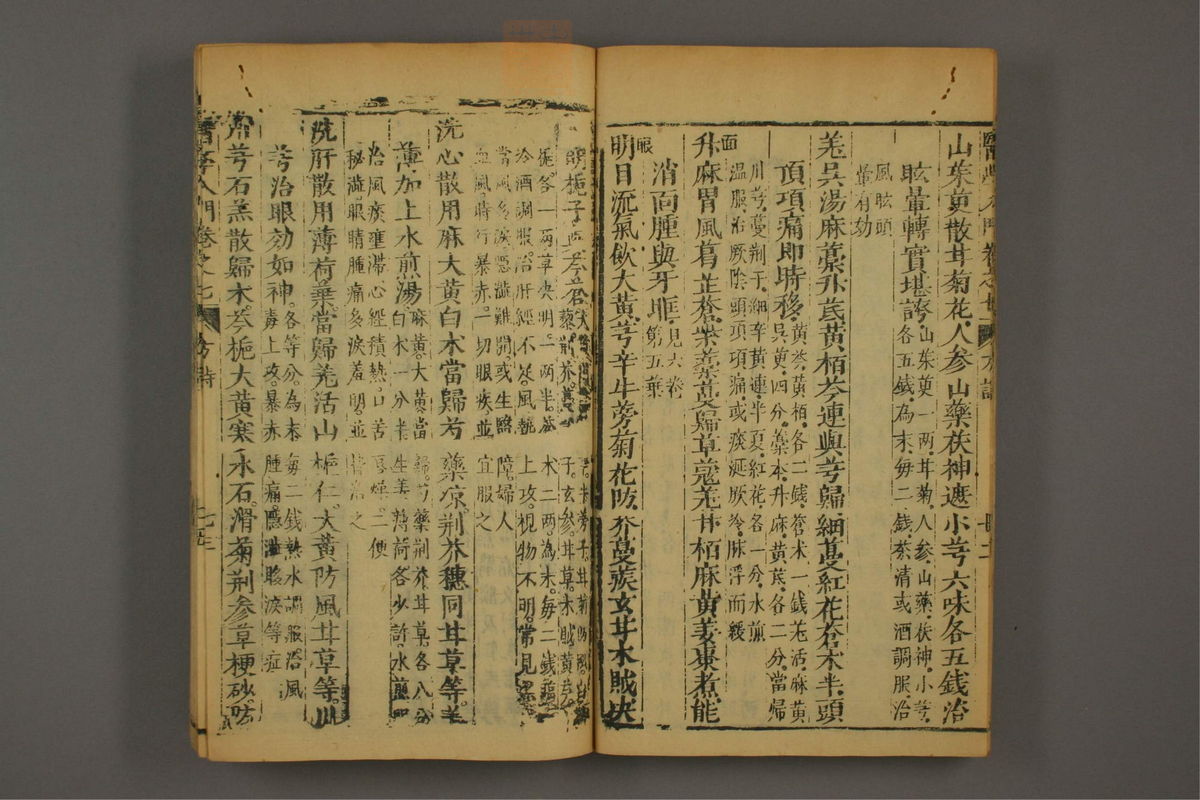 醫學入門卷之七 方詩
山茱萸散甘菊花人參山藥茯神遮小芎六味各五錢治
眩暈轉實堪誇山茱萸一兩甘菊人參山藥茯神小芎
各五錢為末每二錢茶清或酒調服治
風眩頭
暈有効
羌吳湯麻藁升芪黃栢芩連與芎歸細蔓紅花蒼朮半頭
頂項痛即時移黃芩黃栢各二錢蒼朮一錢羌活麻黃
吳萸四分藁本升麻黃芪各二分當歸
川芎蔓荊子細辛黃連半夏紅花各一分水煎
溫服治厥陰頭頂項痛或痰涎厥冷脉浮而緩
面
升麻胃風葛芷蒼柴藁蔓歸草蔻羌甘栢麻黃姜棗煮能
消面腫與牙眶見六卷
第五葉
眼
明目流氣飲大黃芎辛牛蒡菊花防芥蔓蒺玄甘木賊决
明梔子與芩蒼大黃川芎細辛牛蒡子甘菊防風白
蒺藜荊芥蔓荊子玄參甘草木賊黃芩
梔各一兩草决明一兩半蒼朮二兩為末每二錢臨
冷酒調服治肝經不足風熱上攻視物不明常見黑
當風多淚隱澁難開或生瞖障婦人
血風時行暴赤一切眼疾並宜服之
洗心散用麻大黃白朮當歸芍藥凉荊芥穗同甘草等姜
薄加上水煎湯麻黃大黃當歸芍藥荊芥甘草各八分
白朮一分半生姜薄荷各少許水煎服
治風痰壅滯心經積熱口苦唇燥二便
秘澁眼睛腫痛多淚羞明並皆治之
洗肝散用薄荷葉當歸羌活山梔仁大黃防風甘草等川
芎治眼効如神各等分為末每二錢熱水調服治風
毒上攻暴赤腫痛隱澁眵淚等症
芎石羔散歸木芩梔大黃寒水石滑菊荊參草梗砂防
醫學入門卷之七 方詩 七五